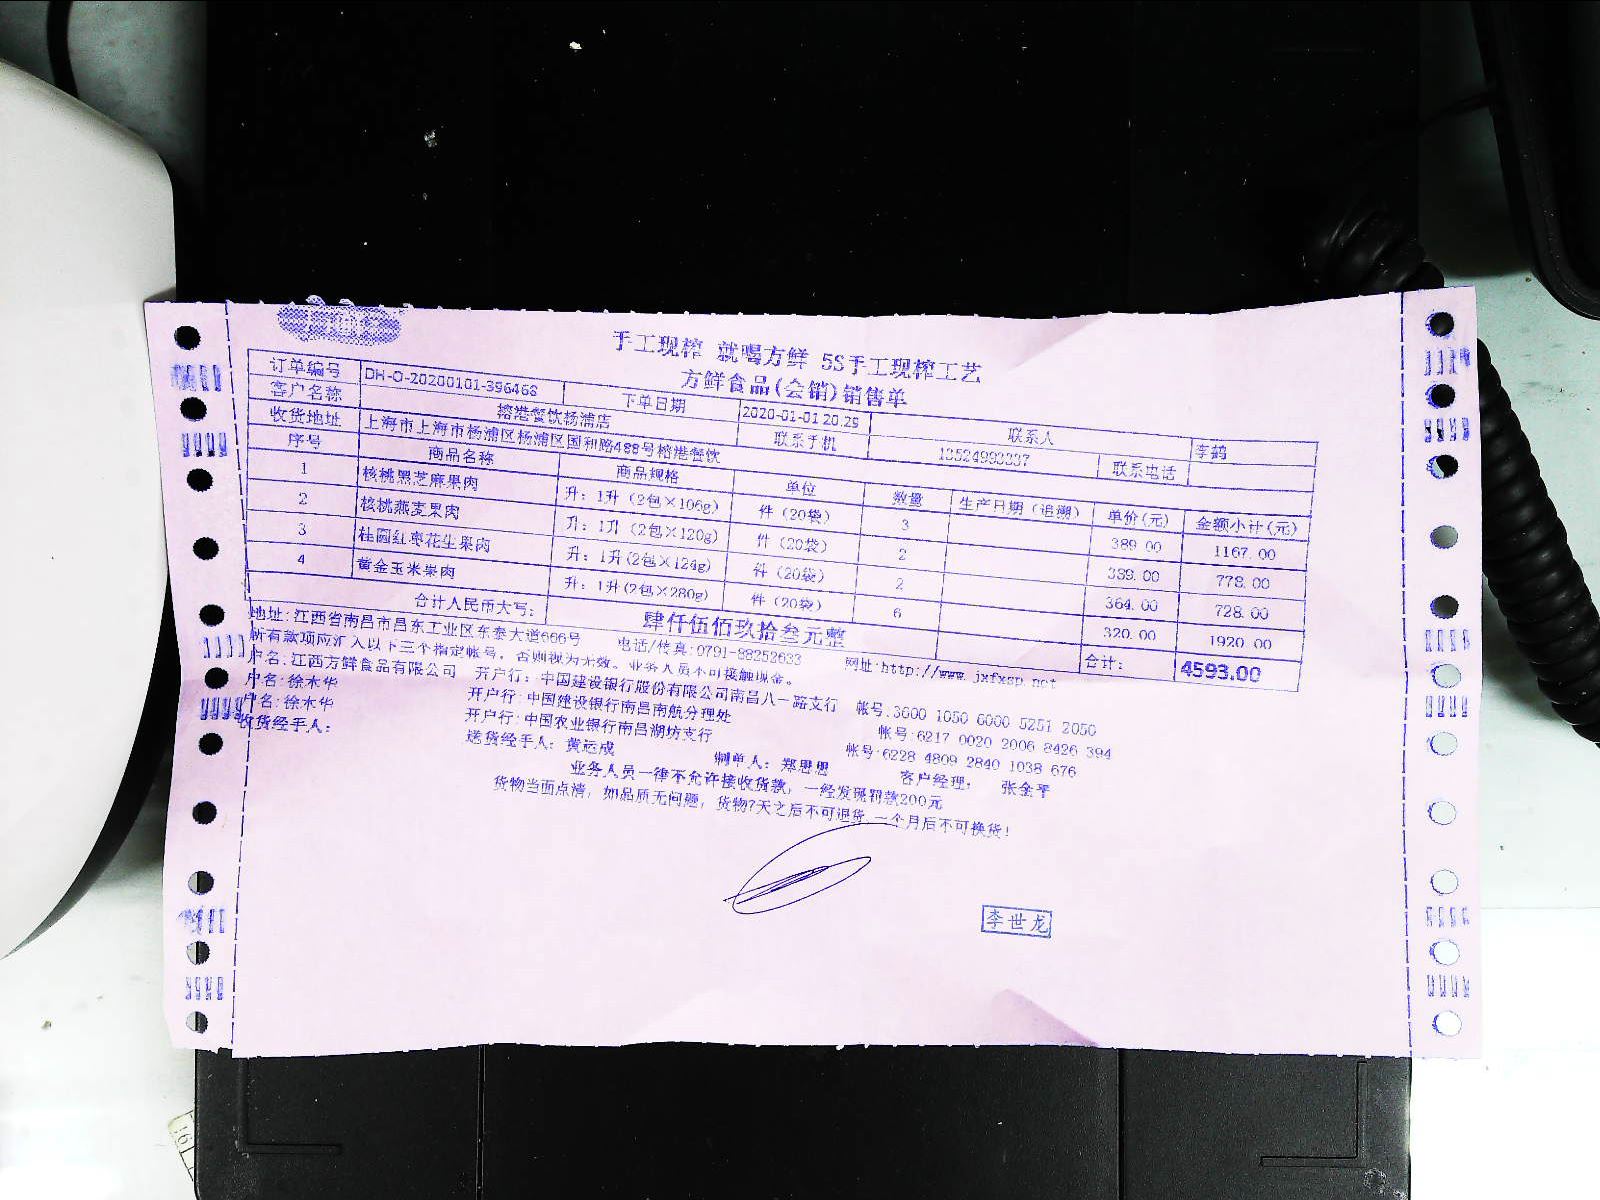 手工现榨 就喝方鲜 5S手工现榨工艺
方鲜食品(会销)销售单
订单编号 DH-O-20200101-396468 下单日期 2020-01-01 20:29 联系人 李鹤
客户名称 榕港餐饮杨浦店 联系手机 13524993337 联系电话
收货地址 上海市上海市杨浦区杨浦区国和路488号榕港餐饮
序号 商品名称 商品规格 单位 数量 生产日期(追溯) 单价(元) 金额小计(元)
1 核桃黑芝麻果肉 升: 1升(2包×106g) 件(20袋) 3 389.00 1167.00
2 核桃燕麦果肉 升: 1升(2包×120g) 件(20袋) 2 389.00 778.00
3 桂圆红枣花生果肉 升: 1升(2包×124g) 件(20袋) 2 364.00 728.00
4 黄金玉米果肉 升: 1升(2包×280g) 件(20袋) 6 320.00 1920.00
合计人民币大写: 肆仟伍佰玖拾叁元整 合计: 4593.00
地址:江西省南昌市昌东工业区东泰大道666号 电话/传真:0791-88252633 网址:http://www.jxfxsp.net
所有款项应汇入以下三个指定帐号，否则视为无效。业务人员不可接触现金。
户名:江西方鲜食品有限公司 开户行:中国建设银行股份有限公司南昌八一路支行 帐号:3600 1050 6000 5251 2050
户名:徐木华 开户行:中国建设银行南昌南航分理处 帐号:6217 0020 2006 8426 394
户名:徐木华 开户行:中国农业银行南昌湖坊支行 帐号:6228 4809 2840 1038 676
收货经手人: 送货经手人: 黄运成 制单人: 郑思思 客户经理: 张金平
业务人员一律不允许接收货款，一经发现罚款200元
货物当面点清，如品质无问题，货物7天之后不可退货,一个月后不可换货!
李世龙